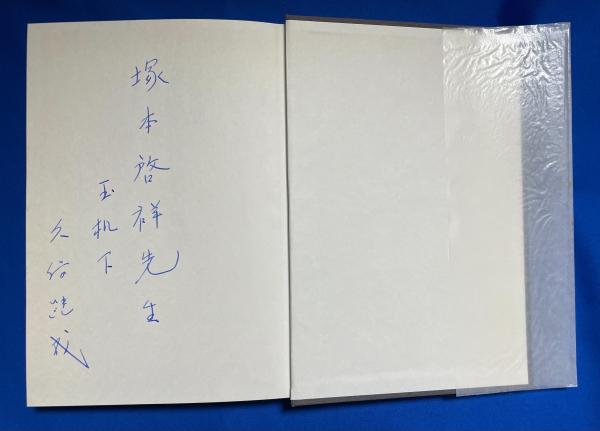 塚本啓祥先生
玉机下
久保継成